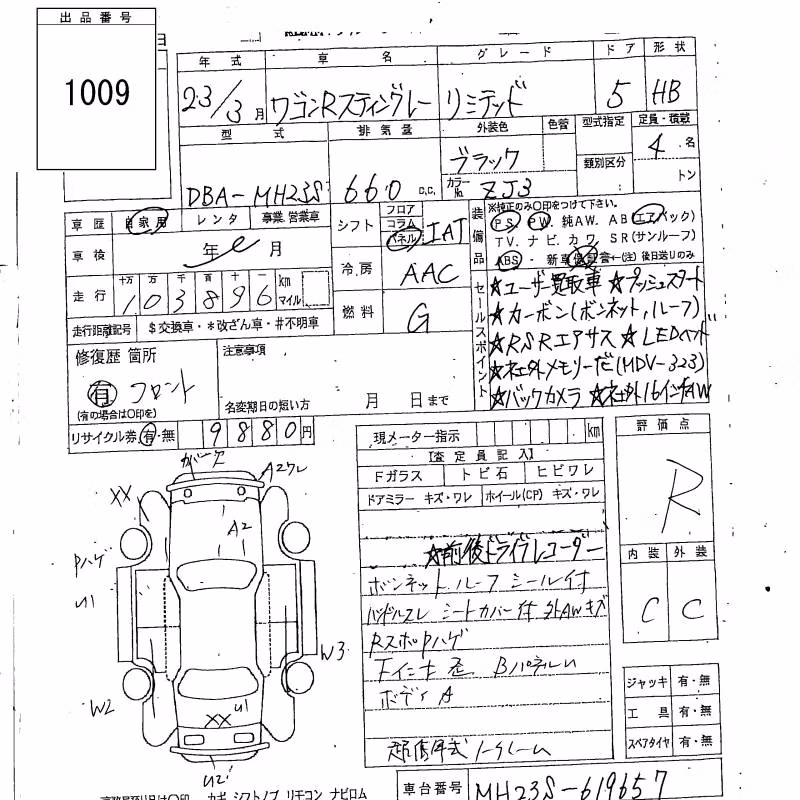 出品番号
1009
年式 車名 グレード ドア 形状
23/3月 ワゴンRスティングレー リミテッド 5 HB
型式 排気量 外装色 色替 型式指定 定員・積載
DBA-MH23S 660 C.C. ブラック 類別区分 4名
カラーNo. ZJ3 トン
車歴 自家用 レンタ 事業・営業車
シフト フロア コラム パネル IAT
装備品 ※純正のみ〇印をつけて下さい。
PS PW. 純AW. AB(エアバック)
TV. ナビ. カワ. SR(サンルーフ)
ABS ・ 新車保証書←(注)後日送りのみ
車検 年 月
冷房 AAC
走行 十万 万 千 百 十 一 km マイル
103896
燃料 G
走行距離記号 $交換車・*改ざん車・#不明車
セールスポイント
★ユーザー買取車 ★プッシュスタート
★カーボン(ボンネット,ルーフ)
★RSRエアサス ★LEDヘッド
★社外メモリーナビ(MDV-323)
★バックカメラ ★社外16インチAW
修復歴 箇所
有 フロント
(有の場合は〇印を)
注意事項
名変期日の短い方 月 日まで
リサイクル券 有・無 9880円
現メーター指示 km
【査定員記入】
Fガラス トビ石 ヒビワレ
ドアミラー キズ・ワレ ホイール(CP) キズ・ワレ
★前後ドライブレコーダー
ボンネット ルーフ シール付
ハンドルスレ シートカバー付 外AWキズ
RスポPハゲ
ボディA
評価点
R
内装 外装
C C
A2ワレ
XX
A2
Pハゲ
U1
W3
W2
XX U1
U2
ジャッキ 有・無
工具 有・無
スペアタイヤ 有・無
車台番号 MH23S-619657
カギ シフトノブ リモコン ナビロム